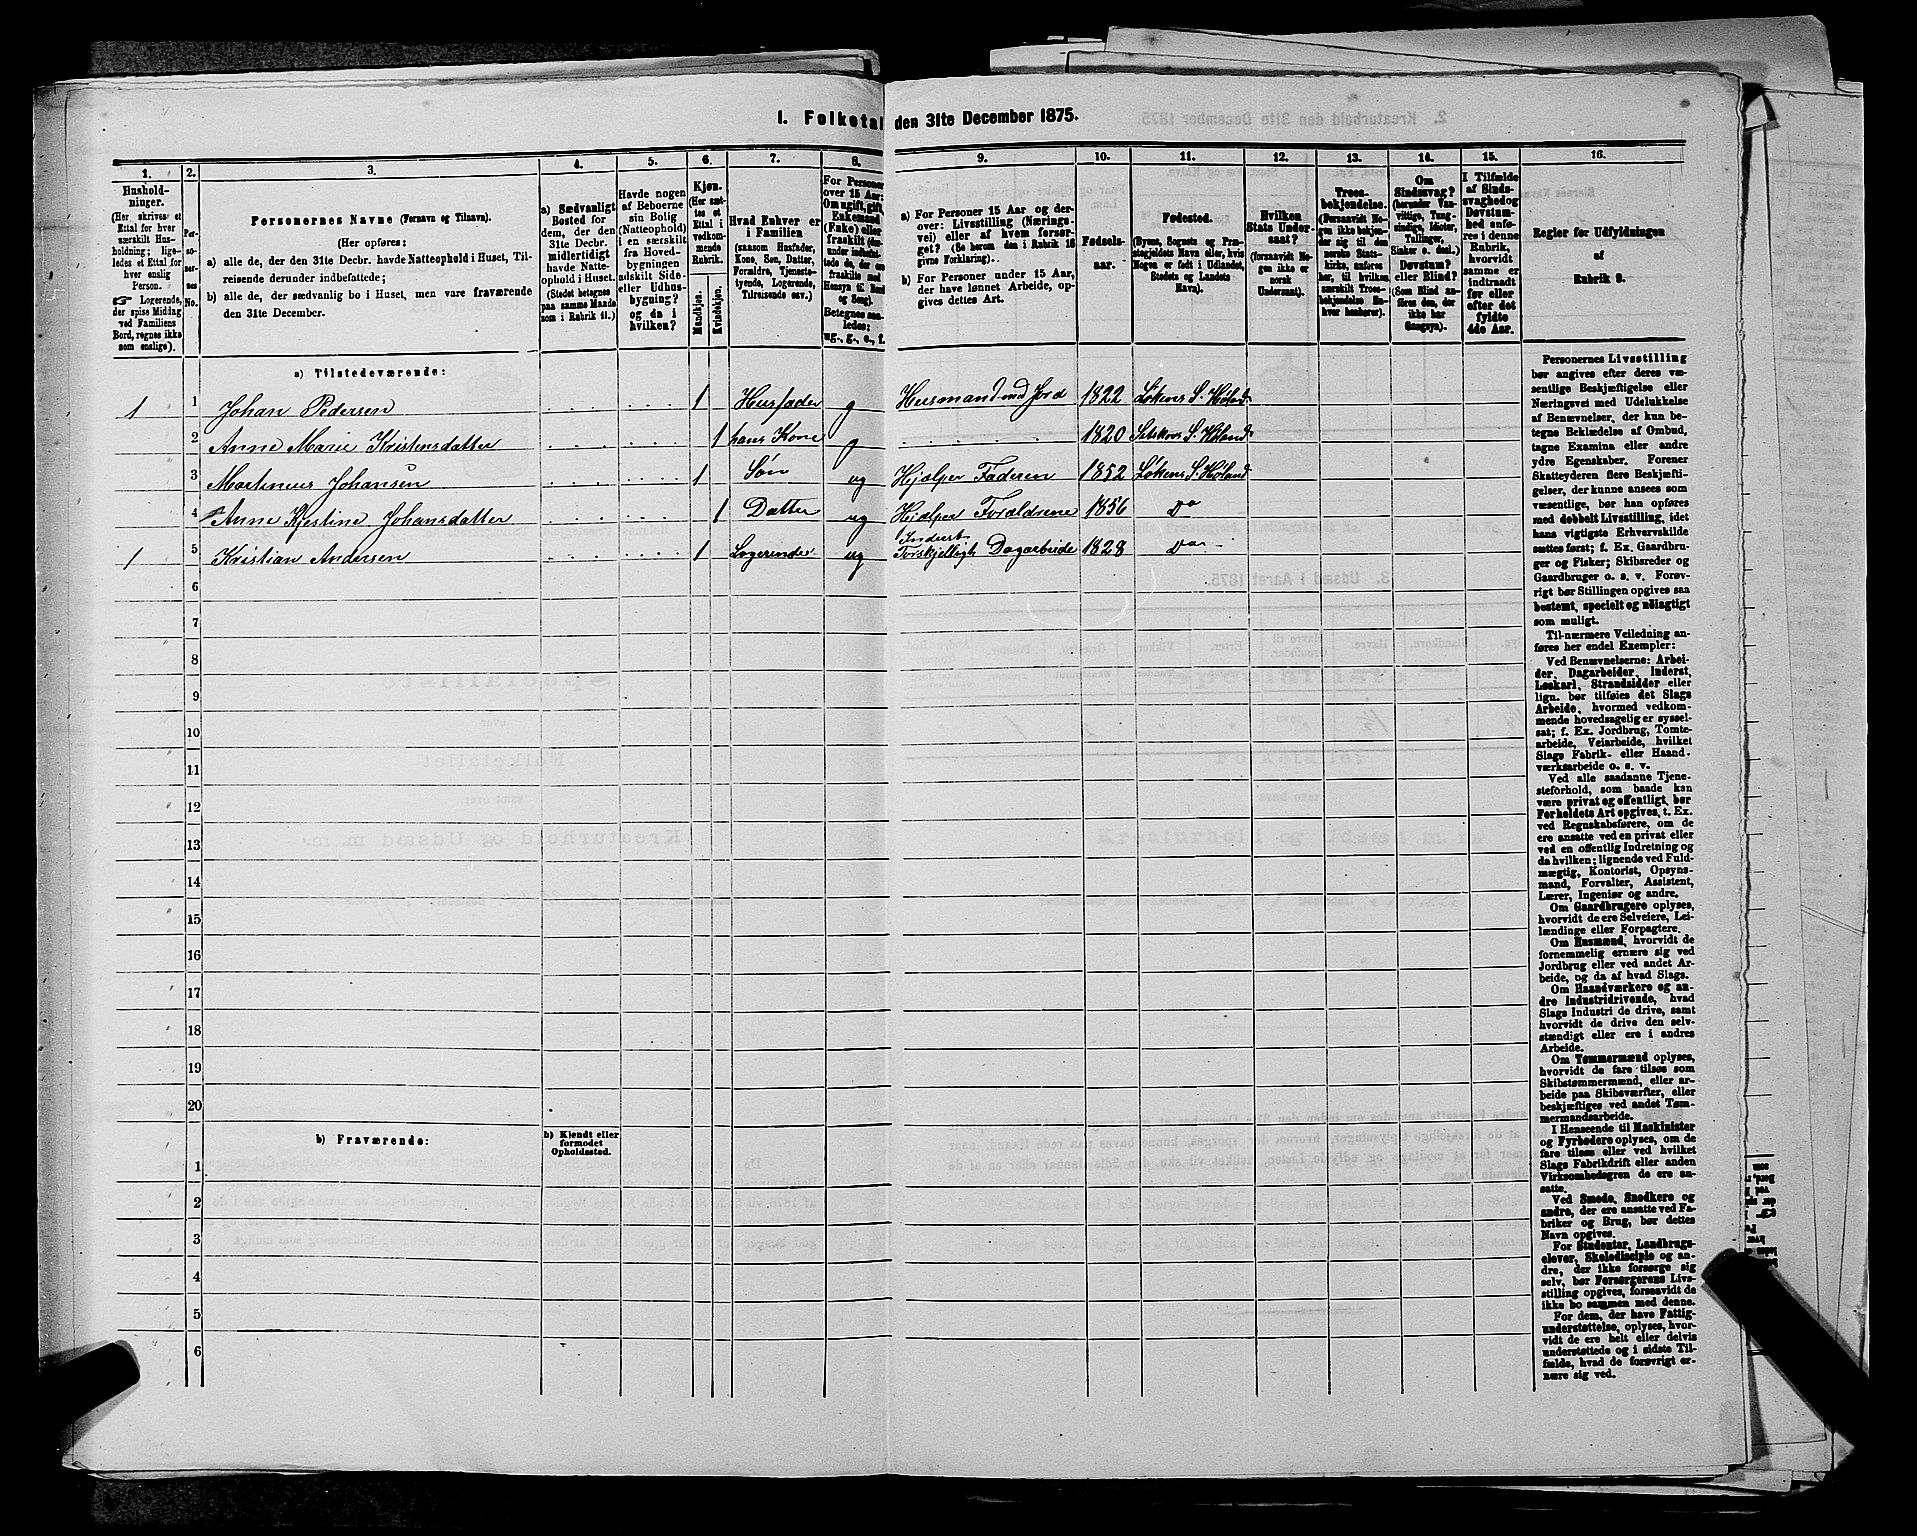 1. Folketal den 31te December 1875.
1.
Hushold-
ninger.
(Her skrives et
Ettal for hver
særskilt Hus-
holdning; lige-
ledes et Ettal for
hver enslig
Person.
☞ Logerende,
der spise Middag
ved Familiens
Bord, regnes ikke
som enslige).
2.
Per-
so-
ner-
nes
No.
3.
Personernes Navne (Fornavn og Tilnavn).
(Her opføres:
a) alle de, der den 31te Decbr. havde Natteophold i Huset, Til-
reisende derunder indbefattede;
b) alle de, der sædvanlig bo i Huset, men vare fraværende
den 31te December.
4.
a) Sædvanligt
Bosted for
dem, der den
31te Decbr.
midlertidigt
havde Natte-
ophold i Huset.
(Stedet betegnes
paa samme Maade
som i Rubrik 11.)
5.
Havde nogen
af Beboerne
sin Bolig
(Natteophold)
i en særskilt
fra Hoved-
bygningen
adskilt Side-
eller Udhus-
bygning?
og da i
hvilken?
6.
Kjøn.
(Her sæt-
tes et
Ettal i
vedkom-
mende
Rubrik.
Mandkjøn.
Kvindekjøn.
7.
Hvad Enhver er
i Familien
(saasom Husfader,
Kone, Søn, Datter,
Forældre, Tjeneste-
tyende, Logerende,
Tilreisende osv.)
8.
For Personer
over 15 Aar:
Om ugift, gift,
Enkemand
(Enke) eller
fraskilt
Betegnes saa-
ledes:
ug., g., e., f.
9.
a) For Personer 15 Aar og der-
over: Livsstilling (Nærings-
vei) eller af hvem forsør-
get? (Se herom den i Rubrik 16
givne Forklaring).
b) For Personer under 15 Aar,
der have lønnet Arbeide, op-
gives dettes Art.
10.
Fødsels-
aar.
11.
Fødested.
(Byens, Sognets og Præ-
stegjeldets Navn eller, hvis
Nogen er født i Udlandet,
Stedets og Landets
Navn).
12.
Hvilken
Stats Under-
saat?
(foranavidt No-
gen ikke er
norsk
Undersaat).
13.
Troes-
bekjendelse.
(Forsaavidt No-
gen ikke bekjen-
der sig til den
norske Stats-
kirke, anføres
her, til hvilken
særskilt Troes-
bekjendelse En-
hver henhører).
14.
Om
Sindssvag?
(herunder Van-
vittige, Tung-
sindige, Idioter,
Tullinger,
Sinker o. desl.)
Døvstum?
eller Blind?
(Som Blind an-
føres den, der
ikke har
Gangsyn).
15.
I Tilfælde
af Sinds-
svaghed og
Døvstum-
hed anføres
i denne
Rubrik,
hvorvidt
samme er
indtraadt
før eller
efter det
fyldte
4de Aar.
16.
Regler for Udfyldningen
af
Rubrik 9.
a) Tilstedeværende:
1 1 Johan Pedersen 1 Husfader g Husmand med Jord 1822 Løkens S. Høland
2 Anne Marie Kristensdatter 1 hans Kone g 1820 Setskovs S. Høland
3 Martinius Johansen 1 Søn ug Hjælper Faderen 1852 Løkens S. Høland
4 Anne Kjestine Johansdatter 1 Datter ug Hjælper Forældrene 1856 Do
1 5 Kristian Andersen 1 Logerende ug Inderst Forskjelligt Dagarbeide 1828 Do
6
7
8
9
10
11
12
13
14
15
16
17
18
19
20
b) Fraværende:
b) Kjendt eller
formodet
Opholdssted.
1
2
3
4
5
6
Personernes Livsstilling
bør angives efter deres væ-
sentlige Beskjæftigelse eller
Næringsvei med Udelukkelse
af Benævnelser, der kun be-
tegne Beklædelse af Ombud,
tagne Examina eller andre
ydre Egenskaber. Forener
Skatteyderen flere Beskjæfti-
gelser, der kunne ansees som
væsentlige, bør han opføres
med dobbelt Livsstilling, idet
hans vigtigste Erhvervskilde
sættes først; f. Ex. Gaardbru-
ger og Fisker; Skibsreder og
Gaardbruger o. s. v. Forøv-
rigt bør Stillingen opgives saa
bestemt, specielt og nøiagtigt
som muligt.
Til nærmere Veiledning an-
føres her endel Exempler:
Ved Benævnelserne: Arbei-
der, Dagarbeider, Inderst,
Løskarl, Strandsidder eller
lign. bør tilføies det Slags
Arbeide, hvormed vedkom-
mende hovedsagelig er syssel-
sat; f. Ex. Jordbrug, Tomte-
arbeide, Veiarbeide, hvilket
Slags Fabrik- eller Haand-
værksarbeide o. s. v.
Ved alle saadanne Tjene-
steforhold, som baade kan
være privat og offentligt, bør
Forholdets Art opgives, t. Ex.
ved Regnskabsførere, om de
ere ansatte ved en privat eller
ved en offentlig Indretning og
da hvilken; lignende ved Fuld-
mægtig, Kontorist, Opsyns-
mand, Forvalter, Assistent,
Lærer, Ingeniør og andre.
Om Gaardbrugere oplyses,
hvorvidt de ere Selveiere, Lei-
lændinge eller Forpagtere.
Om Husmænd, hvorvidt de
fornemmelig ernære sig ved
Jordbrug eller ved andet Ar-
beide, og da af hvad Slags.
Om Haandværkere og an-
dre Industridrivende, hvad
Slags Industri de drive, samt
hvorvidt de drive den selv-
stændigt eller ere i andres
Arbeide.
Om Tømmermænd oplyses,
hvorvidt de fare tilsøs som
Skibstømmermænd, eller ar-
beide paa Skibsværfter, eller
beskjæftiges ved andet Tøm-
mermandsarbeide.
I Henseende til Maskinister
og Fyrbødere oplyses, om de
fare tilsøs eller ved hvilket
Slags Fabrikdrift eller anden
Virksomhedsgren de ere an-
satte.
Ved Smede, Snedkere og
andre, der ere ansatte ved Fa-
briker og Brug, bør dettes
Navn opgives.
For Studenter, Landbrugs-
elever, Skoledisciple og an-
dre, der ikke forsørge sig
selv, bør Forsørgerens Livs-
stilling opgives, forsaavidt de
ikke bo sammen med denne.
For dem, der have Fattig-
understøttelse, oplyses, hvor-
vidt de ere helt eller delvis
understøttede og i sidste Til-
fælde, hvad de forøvrigt er-
nære sig ved.